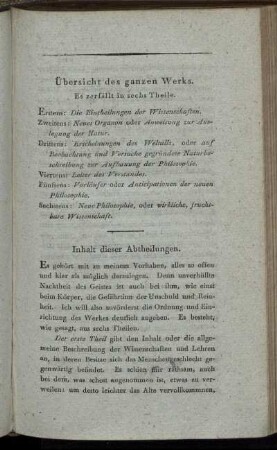 Übersicht des ganzen Werks.
Es zerfällt in sechs Theile.
Erstens: Die Eintheilungen der Wissenschaften.
Zweitens: Neues Organon oder Anweisung zur Aus-
legung der Natur.
Drittens: Erscheinungen des Weltalls, oder auf
Beobachtung und Versuche gegründete Naturbe-
schreibung zur Aufbauung der Philosophie.
Viertens: Leiter des Verstandes.
Fünftens: Vorläufer oder Anticipationen der neuen
Philosophie.
Sechstens: Neue Philosophie, oder wirkliche, frucht-
bare Wissenschaft.
Inhalt dieser Abtheilungen.
Es gehört mit zu meinem Vorhaben, alles so offen
und klar als möglich darzulegen. Denn unverhüllte
Nacktheit des Geistes ist auch bei ihm, wie einst
beim Körper, die Gefährtinn der Unschuld und Rein-
heit. Ich will also zuvörderst die Ordnung und Ein-
richtung des Werkes deutlich angeben. Es besteht,
wie gesagt, aus sechs Theilen.
Der erste Theil gibt den Inhalt oder die allge-
meine Beschreibung der Wissenschaften und Lehren
an, in deren Besitze sich das Menschengeschlecht ge-
genwärtig befindet. Es schien mir rathsam, auch
bei dem, was schon angenommen ist, etwas zu ver-
weilen: um desto leichter das Alte vervollkommnen,